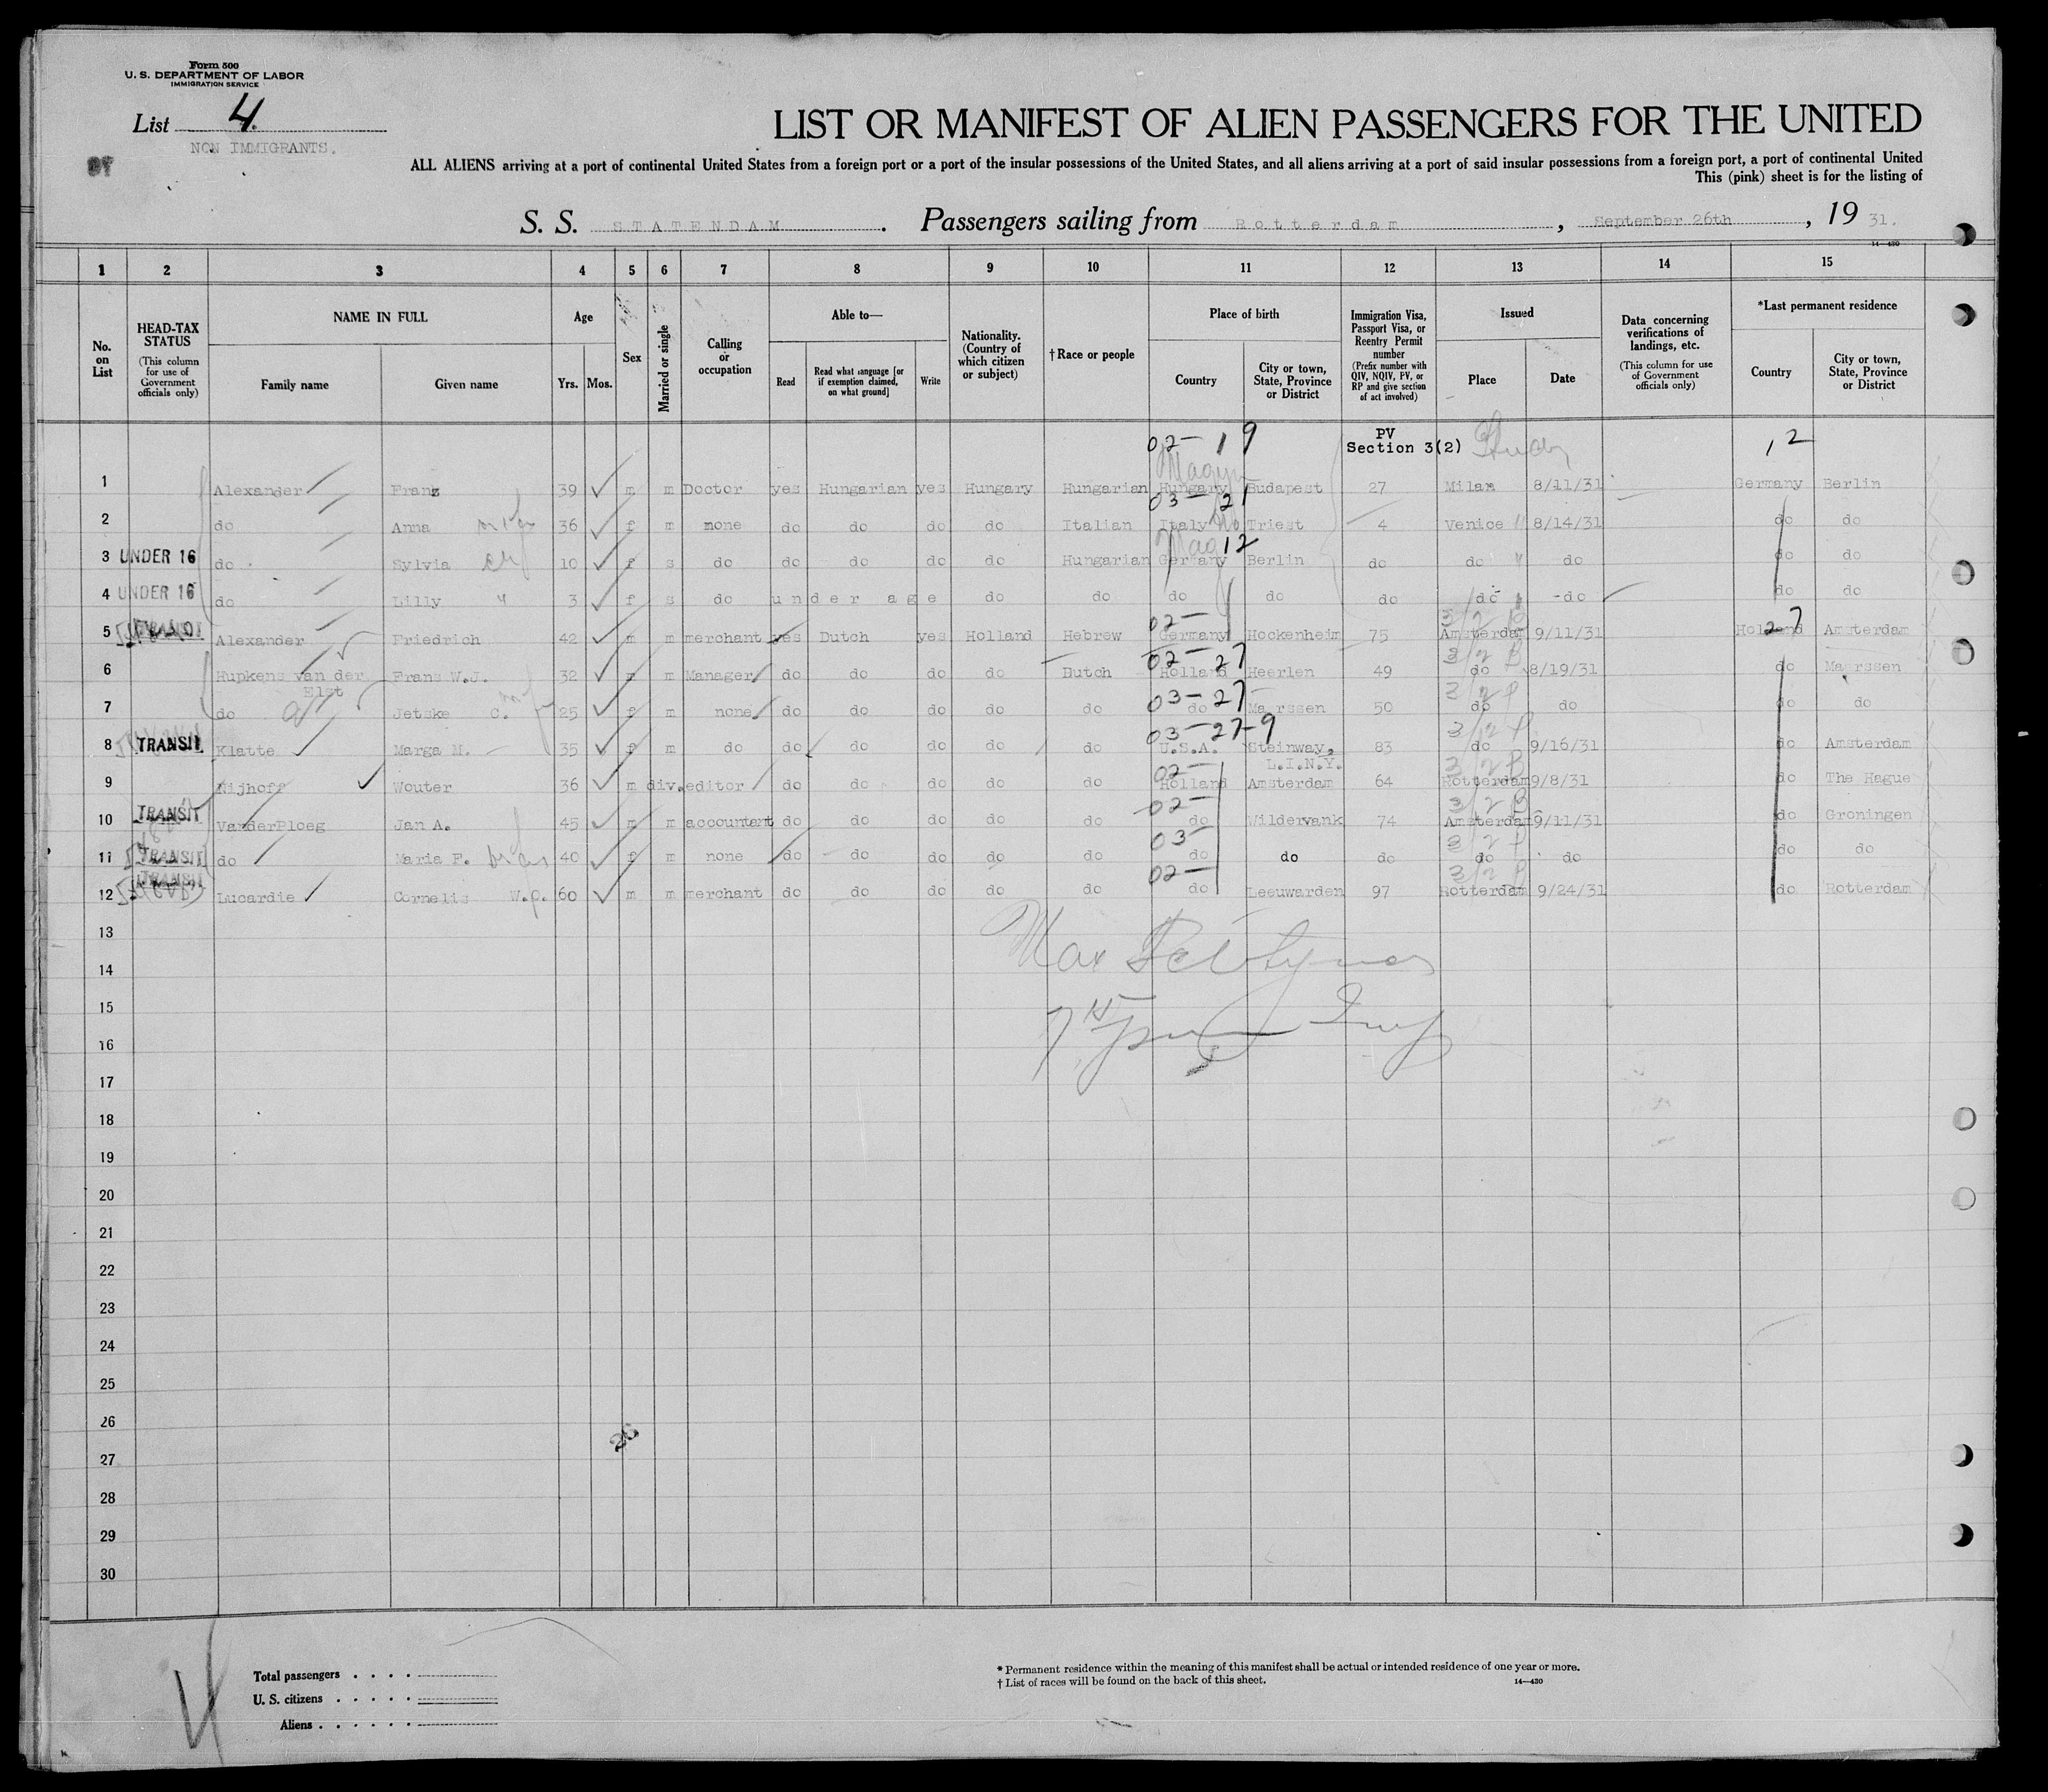 Form 500
U. S. DEPARTMENT OF LABOR
IMMIGRATION SERVICE
List 4.
NON IMMIGRANTS.
LIST OR MANIFEST OF ALIEN PASSENGERS FOR THE UNITED
ALL ALIENS arriving at a port of continental United States from a foreign port or a port of the insular possessions of the United States, and all aliens arriving at a port of said insular possessions from a foreign port, a port of continental United
This (pink) sheet is for the listing of
S. S. STATENDAM. Passengers sailing from Rotterdam, September 26th, 19 31.
14-430
1 2 3 4 5 6 7 8 9 10 11 12 13 14 15
No. on List
HEAD-TAX STATUS (This column for use of Government officials only)
NAME IN FULL
Family name
Given name
Age
Yrs. Mos.
Sex
Married or single
Calling or occupation
Able to—
Read
Read what language [or if exemption claimed, on what ground]
Write
Nationality. (Country of which citizen or subject)
† Race or people
Place of birth
Country
City or town, State, Province or District
Immigration Visa, Passport Visa, or Reentry Permit number (Prefix number with QIV, NQIV, PV, or RP and give section of act involved)
Issued
Place
Date
Data concerning verifications of landings, etc. (This column for use of Government officials only)
*Last permanent residence
Country
City or town, State, Province or District
02- 19 PV Section 3(2) 12
1 Alexander Franz 39 m m Doctor yes Hungarian yes Hungary Hungarian Hungary Budapest 27 Milan 8/11/31 Germany Berlin
03- 21
2 do Anna 36 f m none do do do do Italian Italy Triest 4 Venice 8/14/31 do do
12
3 UNDER 16 do Sylvia 10 f s do do do do do Hungarian Germany Berlin do do do do do
4 UNDER 16 do Lilly 3 f s do under age do do do do do do do do do
02- 3/2 B 27
5 Alexander Friedrich 42 m m merchant yes Dutch yes Holland Hebrew Germany Hockenheim 75 Amsterdam 9/11/31 Holland Amsterdam
02- 27 3/2 B
6 Rupkens van der Elst Frans W.J. 32 m m Manager do do do do Dutch Holland Heerlen 49 do 8/19/31 do Maarssen
03-27-
7 do Jetske C. 25 f m none do do do do do do Maarssen 50 do do do do
03-27-9
8 TRANSIT Klatte Marga M. 35 f m do do do do do do U.S.A. Steinway, L.I.N.Y. 83 do 9/16/31 do Amsterdam
02- 3/2 B
9 Nijhoff Wouter 36 m div. editor do do do do do Holland Amsterdam 64 Rotterdam 9/8/31 do The Hague
02- 3/2 B
10 TRANSIT VanderPloeg Jan A. 45 m m accountant do do do do do do Wildervank 74 Amsterdam 9/11/31 do Groningen
03-
11 TRANSIT do Maria F. 40 f m none do do do do do do do do do do do do
02- 3/2 B
12 TRANSIT Lucardie Cornelis W.P. 60 m m merchant do do do do do do Leeuwarden 97 Rotterdam 9/24/31 do Rotterdam
13
14 Max
15
16
17
18
19
20
21
22
23
24
25
26
27
28
29
30
Total passengers
U. S. citizens
Aliens
* Permanent residence within the meaning of this manifest shall be actual or intended residence of one year or more.
† List of races will be found on the back of this sheet.
14—430